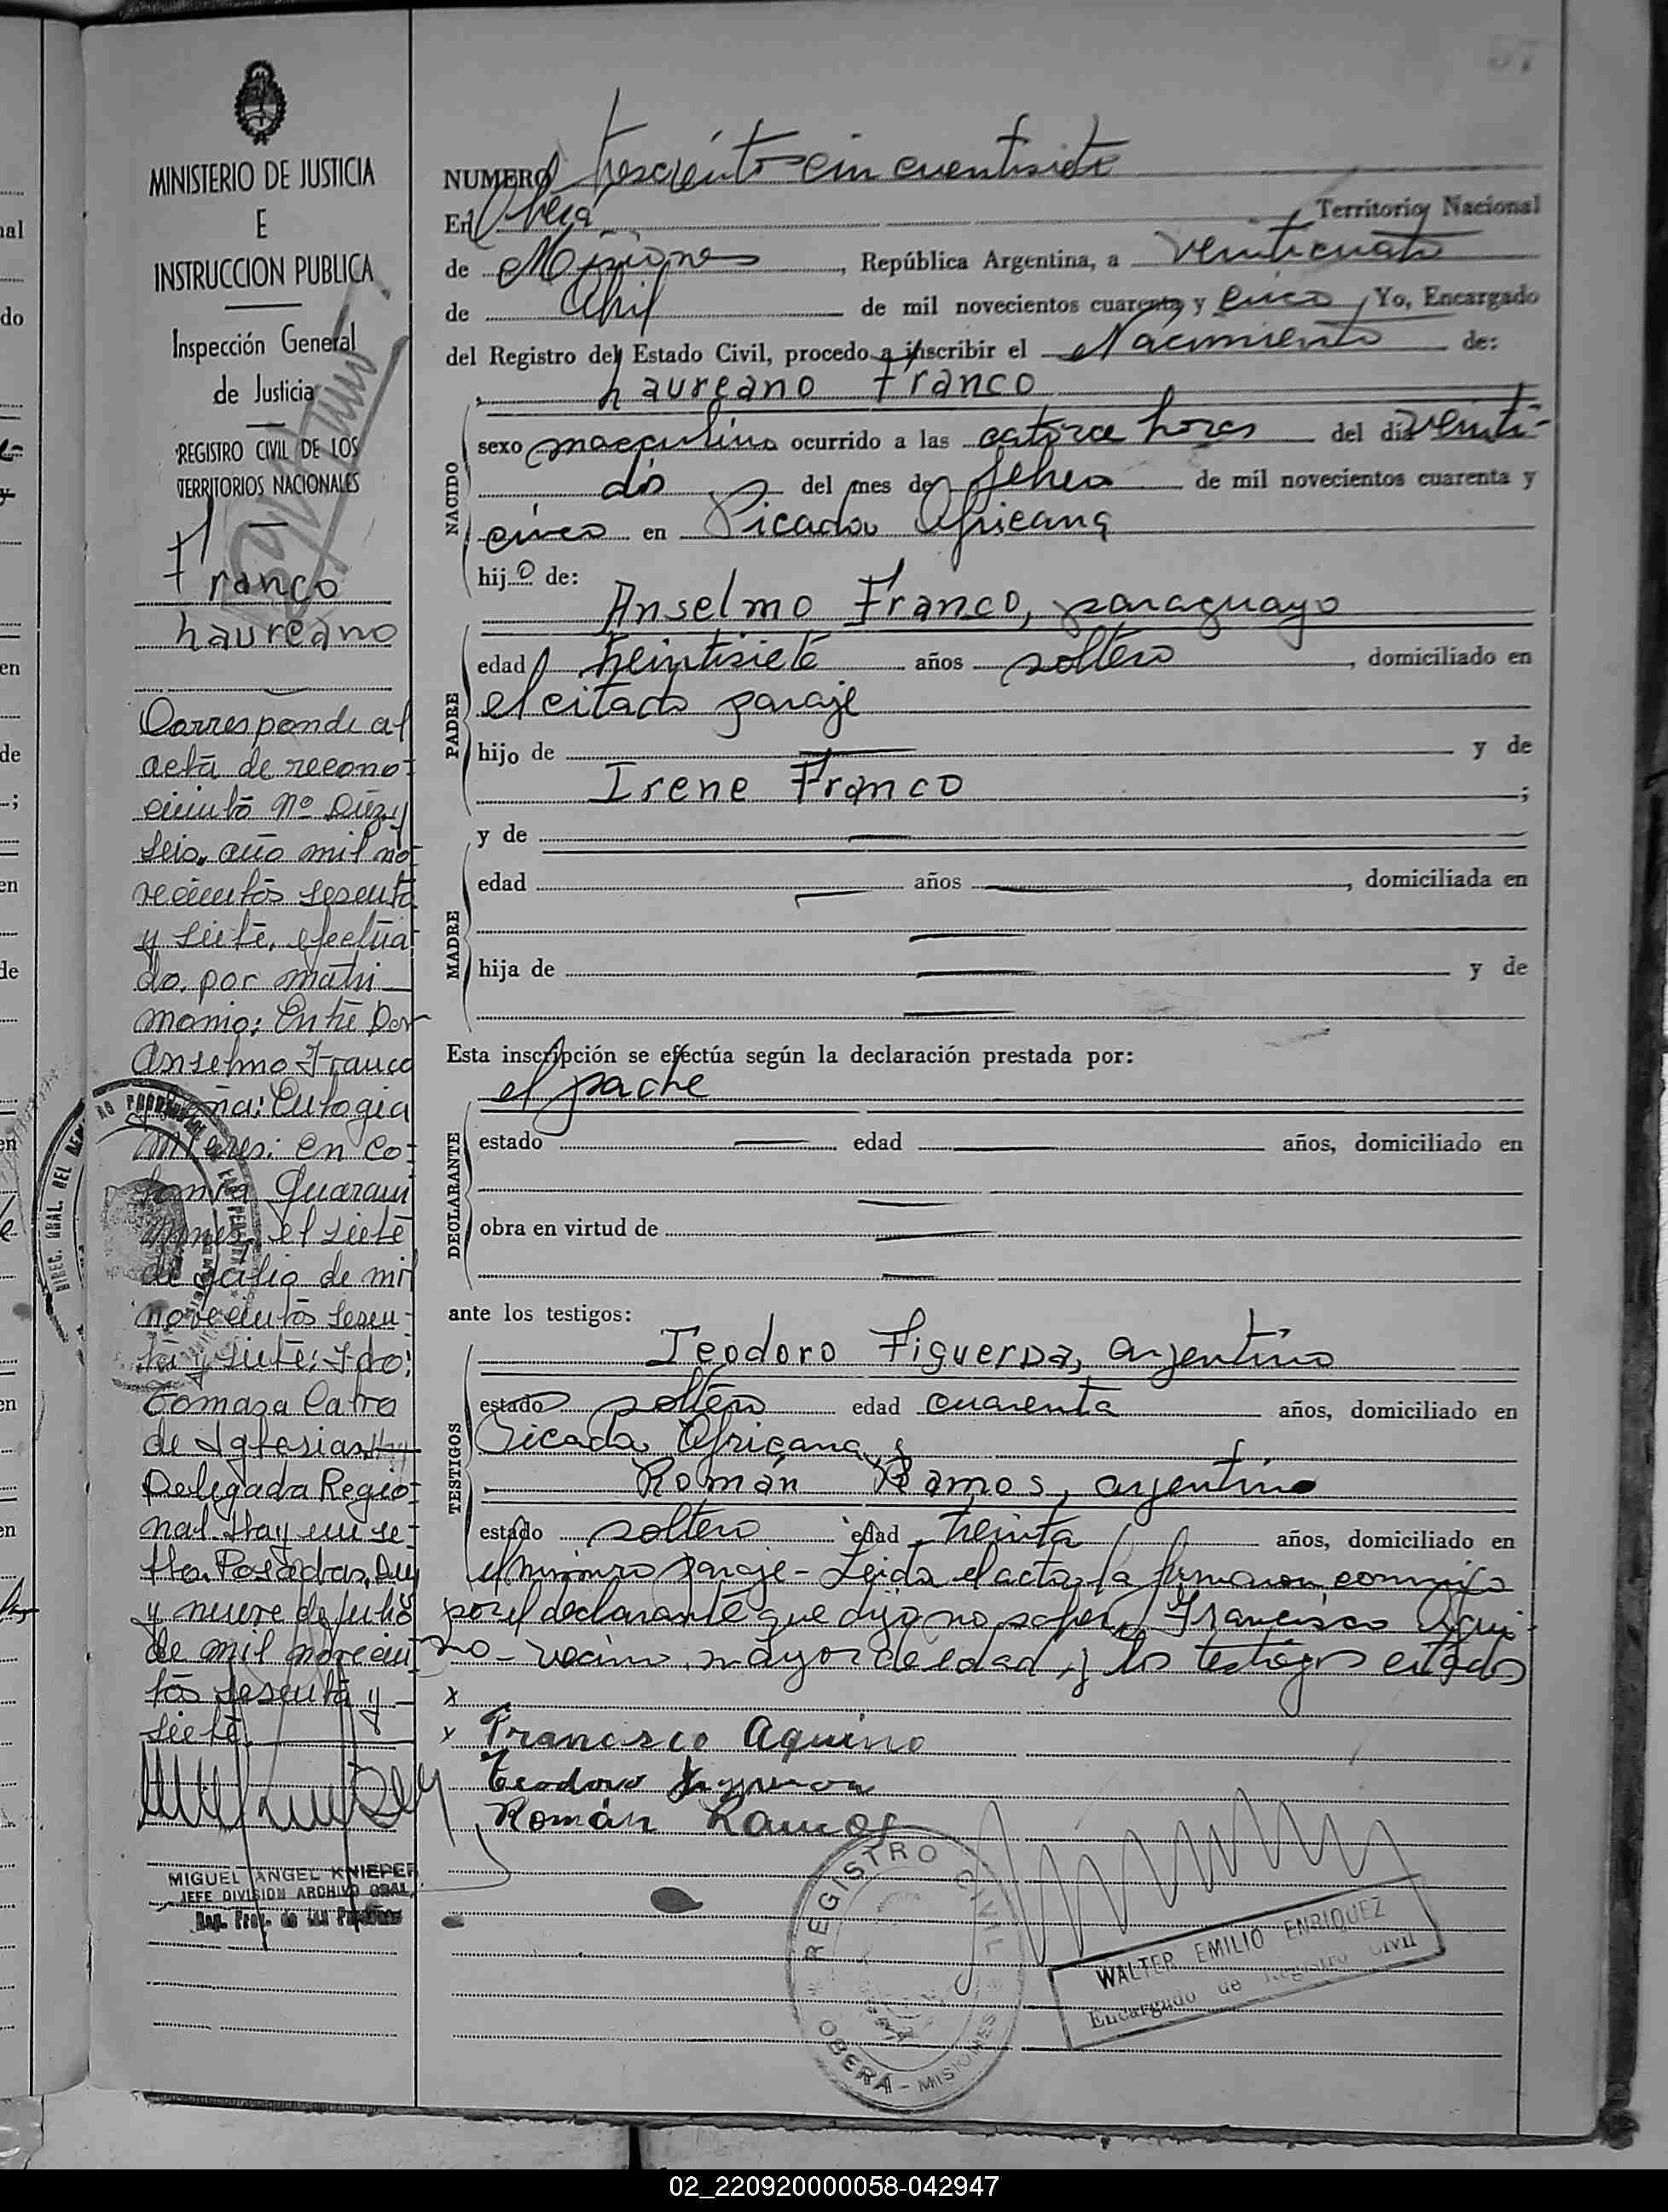 MINISTERIO DE JUSTICIA
E
INSTRUCCION PUBLICA
Inspección General
de Justicia
REGISTRO CIVIL DE LOS
TERRITORIOS NACIONALES
Franco
Laureano
Corresponde al
acta de recono-
cimiento Nº Diez y
seis, año mil no-
vecientos sesenta
y siete, efectua-
do, por matri
monio: Entre Don
Anselmo Franco
y Doña: Eulogia
en Co-
lonia Guarani
Mnes. el siete
de Julio de mil
novecientos sesen-
ta y siete: Fdo:
Tomasa
de Iglesias
Delegada Regio-
nal. Hay un se-
llo. Posadas, Diez
y nueve de julio
de mil novecien-
tos sesenta y
siete.
MIGUEL ANGEL KNIEPER
JEFE DIVISION ARCHIVO GRAL.
NUMERO trescientos cincuentisiete
En Oberá Territorio Nacional
de Misiones, República Argentina, a veinticuatro
de Abril de mil novecientos cuarenta y cinco, Yo, Encargado
del Registro del Estado Civil, procedo a inscribir el Nacimiento de:
Laureano Franco
NACIDO
sexo masculino ocurrido a las catorce horas del día veinti-
dós del mes de febrero de mil novecientos cuarenta y
cinco en Picada Africana
hijo de:
PADRE
Anselmo Franco, paraguayo
edad treintisiete años soltero, domiciliado en
el citado paraje
hijo de — y de
Irene Franco ;
MADRE
y de —
edad — años —, domiciliada en
—
hija de — y de
—
Esta inscripción se efectúa según la declaración prestada por:
el padre
DECLARANTE
estado — edad — años, domiciliado en
—
obra en virtud de —
—
ante los testigos:
TESTIGOS
Teodoro Figueroa, argentino
estado soltero edad cuarenta años, domiciliado en
Picada Africana y
Román Ramos, argentino
estado soltero edad treinta años, domiciliado en
el mismo paraje - Leida el acta, la firmaron conmigo
por el declarante que dijo no saber, Francisco Aqui-
no - vecino, mayor de edad, y los testigos citados
x
x Francisco Aquino
Teodoro Figueroa
Román Ramos
REGISTRO CIVIL
OBERÁ - MISIONES
WALTER EMILIO ENRIQUEZ
Encargado de Registro Civil
02_220920000058-042947